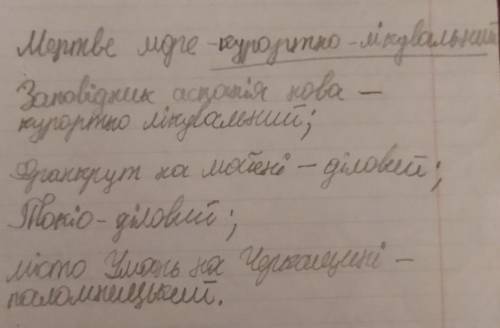 Мертве море - курортно - лікувальний
Заповідник асканія нова -
курортно лікувальний;
Франкфрут на майені - діловий;
Токіо - діловий;
місто Умань на Черкащині -
паломницький.